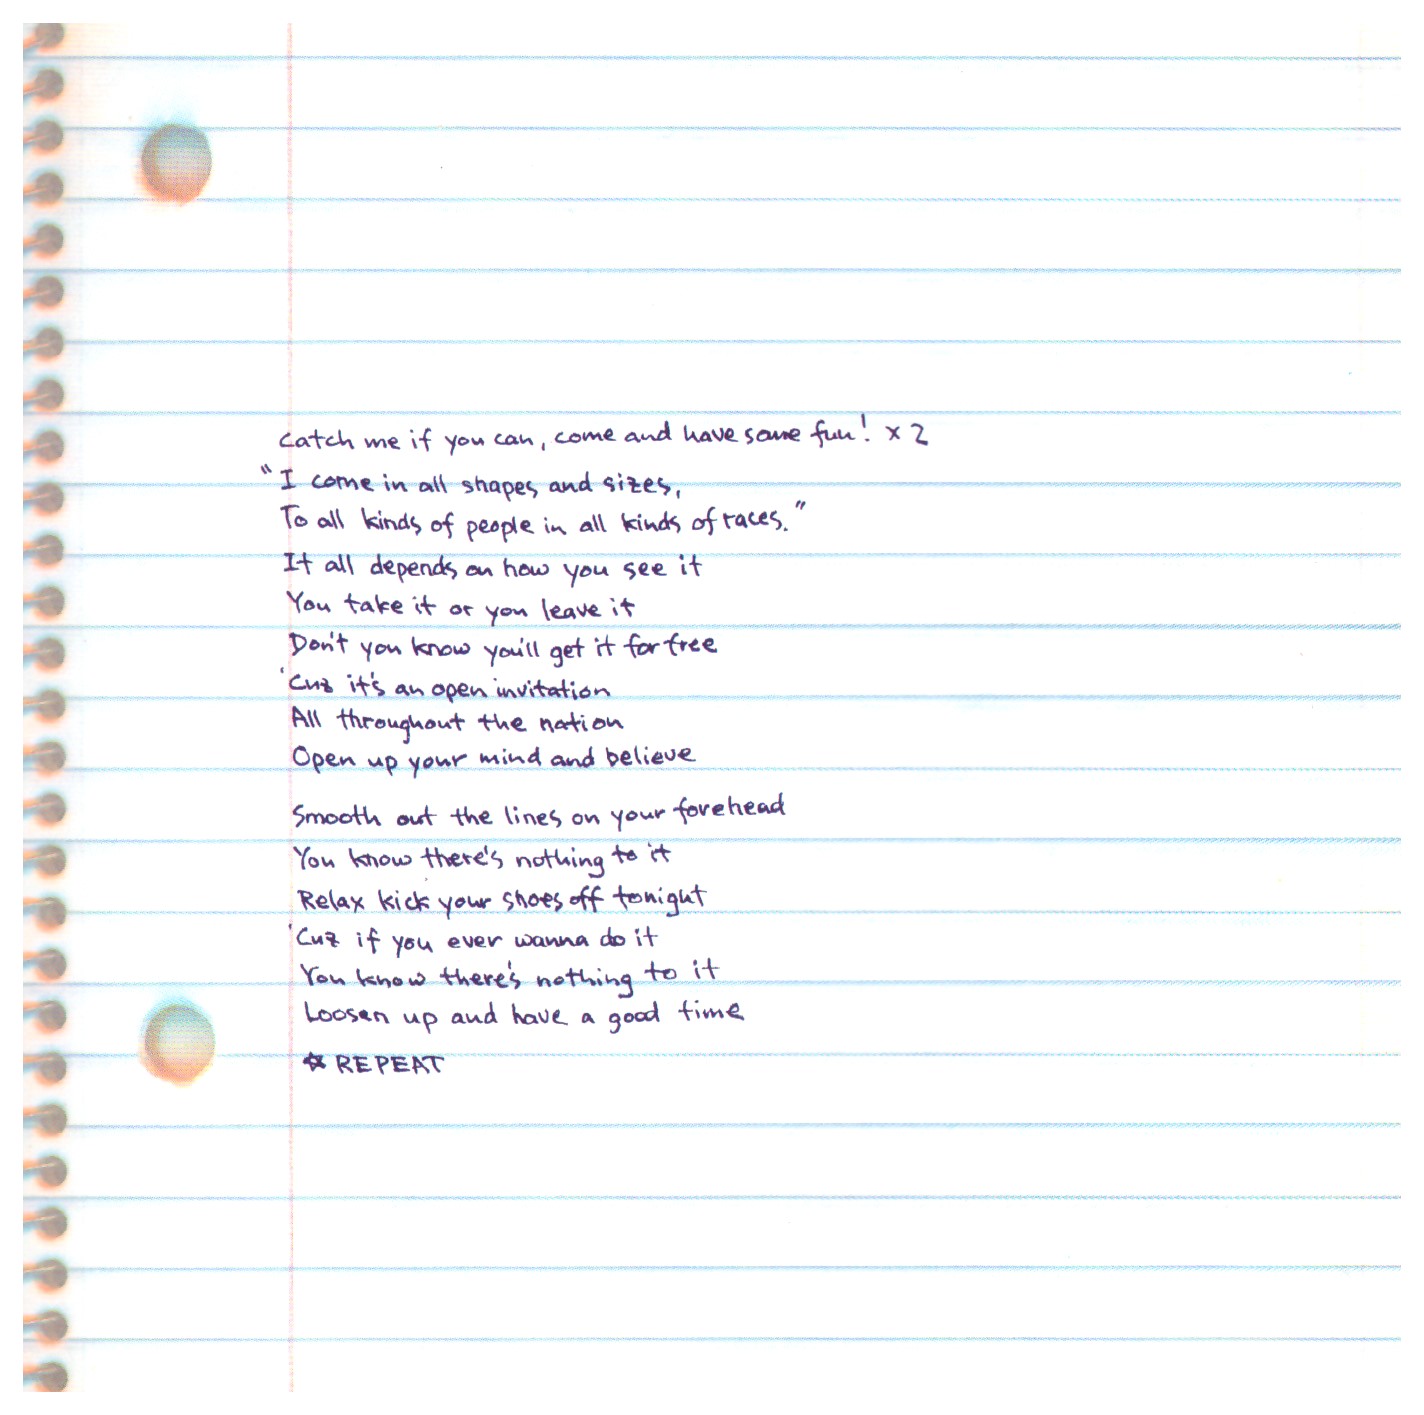 Catch me if you can, come and have some fun! x 2
"I come in all shapes and sizes,
To all kinds of people in all kinds of races."
It all depends on how you see it
You take it or you leave it
Don't you know you'll get it for free
'Cuz it's an open invitation
All throughout the nation
Open up your mind and believe
Smooth out the lines on your forehead
You know there's nothing to it
Relax kick your shoes off tonight
'Cuz if you ever wanna do it
You know there's nothing to it
Loosen up and have a good time
☆ REPEAT